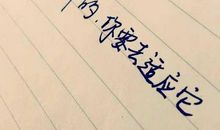 的,你要去适应它